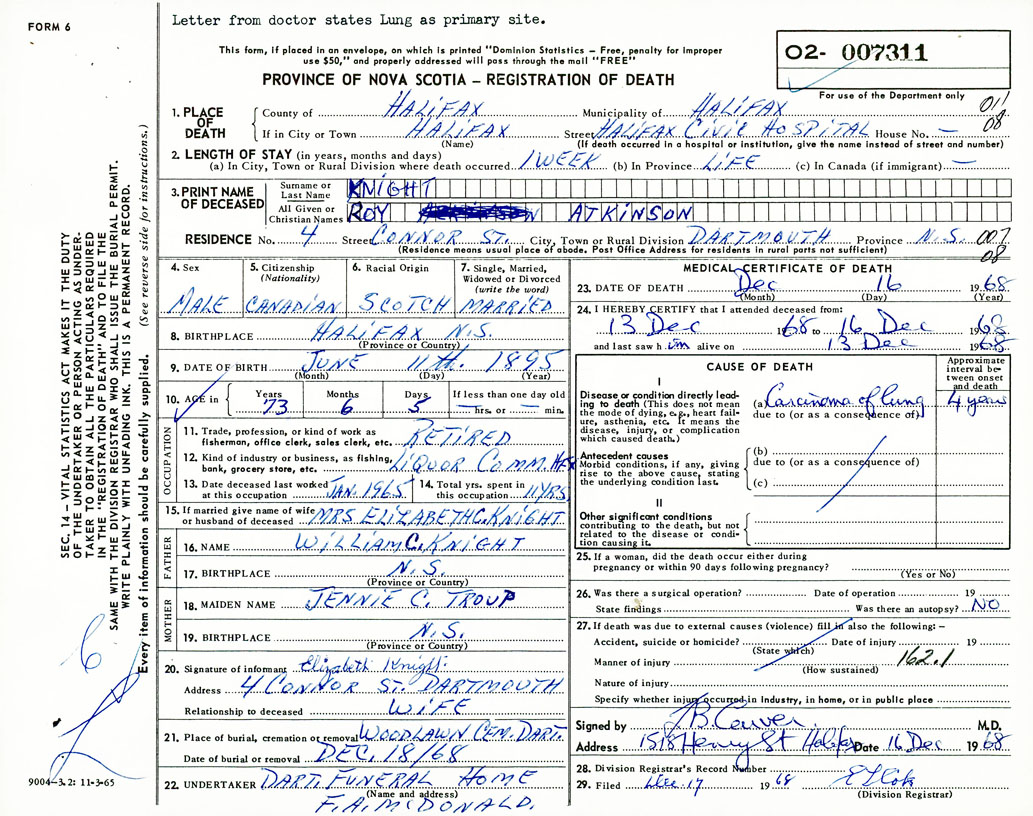 FORM 6
Letter from doctor states Lung as primary site.
This form, if placed in an envelope, on which is printed "Dominion Statistics – Free, penalty for improper
use $50," and properly addressed will pass through the mail "FREE"
02- 007311
PROVINCE OF NOVA SCOTIA – REGISTRATION OF DEATH
For use of the Department only
011
08
1. PLACE OF DEATH
County of HALIFAX Municipality of HALIFAX
If in City or Town HALIFAX Street HALIFAX CIVIC HOSPITAL House No. —
(Name) (If death occurred in a hospital or institution, give the name instead of street and number)
2. LENGTH OF STAY (in years, months and days)
(a) In City, Town or Rural Division where death occurred 1 WEEK (b) In Province LIFE (c) In Canada (if immigrant) —
3. PRINT NAME OF DECEASED
Surname or Last Name KNIGHT
All Given or Christian Names ROY ATKINSON
RESIDENCE No. 4 Street CONNOR ST. City, Town or Rural Division DARTMOUTH Province N.S. 007
08
(Residence means usual place of abode. Post Office Address for residents in rural parts not sufficient)
4. Sex 5. Citizenship (Nationality) 6. Racial Origin 7. Single, Married, Widowed or Divorced (write the word)
MALE CANADIAN SCOTCH MARRIED
8. BIRTHPLACE HALIFAX N.S.
(Province or Country)
9. DATE OF BIRTH JUNE 11th. 1895
(Month) (Day) (Year)
10. AGE in Years Months Days If less than one day old
73 6 5 — hrs. or — min.
OCCUPATION
11. Trade, profession, or kind of work as fisherman, office clerk, sales clerk, etc. RETIRED
12. Kind of industry or business, as fishing, bank, grocery store, etc. LIQUOR COMM. HFX
13. Date deceased last worked at this occupation JAN. 1965 14. Total yrs. spent in this occupation 11 YRS
15. If married give name of wife or husband of deceased MRS ELIZABETH C. KNIGHT
FATHER
16. NAME WILLIAM C. KNIGHT
17. BIRTHPLACE N.S.
(Province or Country)
MOTHER
18. MAIDEN NAME JENNIE C. TROUP
19. BIRTHPLACE N.S.
(Province or Country)
20. Signature of informant Elizabeth Knight
Address 4 CONNOR ST. DARTMOUTH
Relationship to deceased WIFE
21. Place of burial, cremation or removal WOODLAWN CEM. DART.
Date of burial or removal DEC. 18/68
22. UNDERTAKER DART. FUNERAL HOME
(Name and address)
F. A. McDONALD.
MEDICAL CERTIFICATE OF DEATH
23. DATE OF DEATH Dec 16 1968
(Month) (Day) (Year)
24. I HEREBY CERTIFY that I attended deceased from:
13 Dec 1968 to 16 Dec 1968
and last saw him alive on 13 Dec 1968
CAUSE OF DEATH
Approximate interval between onset and death
I
Disease or condition directly leading to death (This does not mean the mode of dying, e.g., heart failure, asthenia, etc. It means the disease, injury, or complication which caused death.)
(a) Carcinoma of lung 4 years
due to (or as a consequence of)
Antecedent causes
Morbid conditions, if any, giving rise to the above cause, stating the underlying condition last.
(b)
due to (or as a consequence of)
(c)
II
Other significant conditions
contributing to the death, but not related to the disease or condition causing it.
25. If a woman, did the death occur either during
pregnancy or within 90 days following pregnancy?
(Yes or No)
26. Was there a surgical operation? Date of operation 19
State findings Was there an autopsy? NO
27. If death was due to external causes (violence) fill in also the following: –
Accident, suicide or homicide? Date of injury 19
(State which)
Manner of injury 162.1
(How sustained)
Nature of injury
Specify whether injury occurred in Industry, in home, or in public place
Signed by M.D.
Address 1518 Henry St Halifax Date 16 Dec 1968
28. Division Registrar's Record Number
29. Filed Dec. 17 1968
(Division Registrar)
SEC. 14 – VITAL STATISTICS ACT MAKES IT THE DUTY
OF THE UNDERTAKER OR PERSON ACTING AS UNDER-
TAKER TO OBTAIN ALL THE PARTICULARS REQUIRED
IN THE "REGISTRATION OF DEATH" AND TO FILE THE
SAME WITH THE DIVISION REGISTRAR WHO SHALL ISSUE THE BURIAL PERMIT.
WRITE PLAINLY WITH UNFADING INK. THIS IS A PERMANENT RECORD.
Every item of information should be carefully supplied. (See reverse side for instructions.)
9004-3.2: 11-3-65